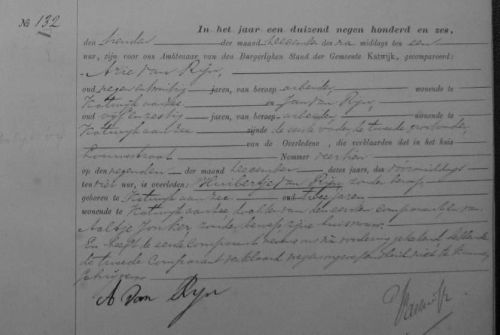 No 132
In het jaar een duizend negen honderd en zes,
den tienden der maand December des na middags ten een
uur, zijn voor ons Ambtenaar van den Burgerlijken Stand der Gemeente Katwijk, gecompareerd:
Arie van Rijn,
oud negen en twintig jaren, van beroep arbeider, wonende te
Katwijk aan Zee en Jan van Rijn,
oud vijf en zestig jaren, van beroep arbeider, wonende te
Katwijk aan Zee zijnde de eerste vader, de tweede grootvader
van de Overledene, die verklaarden dat in het huis
Nummer veertien
op den negenden der maand December dezes jaars, des voormiddags
ten drie uur, is overleden: Huibertje van Rijn, zonder beroep
geboren te Katwijk aan Zee oud twee jaren
wonende te Katwijk aan Zee dochter van den eersten comparant en van
Aaltje Jonker, zonder beroep, zijne huisvrouw.
En heeft de eerste comparant nevens ons
de tweede comparant verklaard
A van Rijn